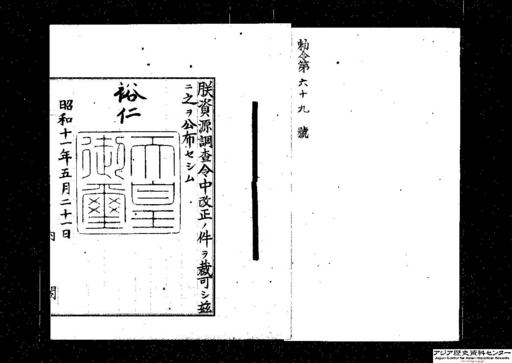 勅令第六十九號
朕資源調査令中改正ノ件ヲ裁可シ茲
ニ之ヲ公布セシム
裕仁
天皇御璽
昭和十一年五月二十一日
内閣
アジア歴史資料センター
Japan Center for Asian Historical Records